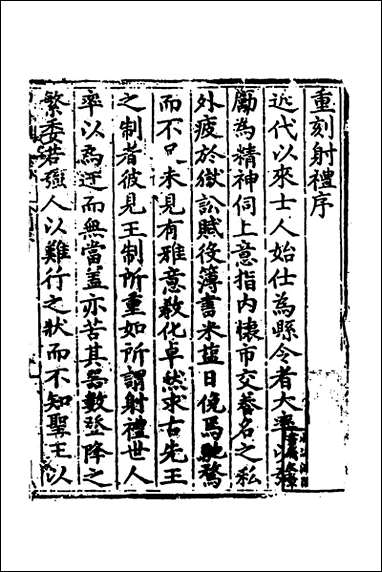 重刻射禮序
近代以來士人始仕為縣令者大率以
勵為精神伺上意指内懷市交養名之私
外疲於獄訟賦役簿書米鹽日俛焉馳騖
而不已未見有雅意教化卓然求古先王
之制者彼見王制所重如所謂射禮世人
率以為迂而無當蓋亦苦其器數登降之
繁委若強人以難行之狀而不知聖王以